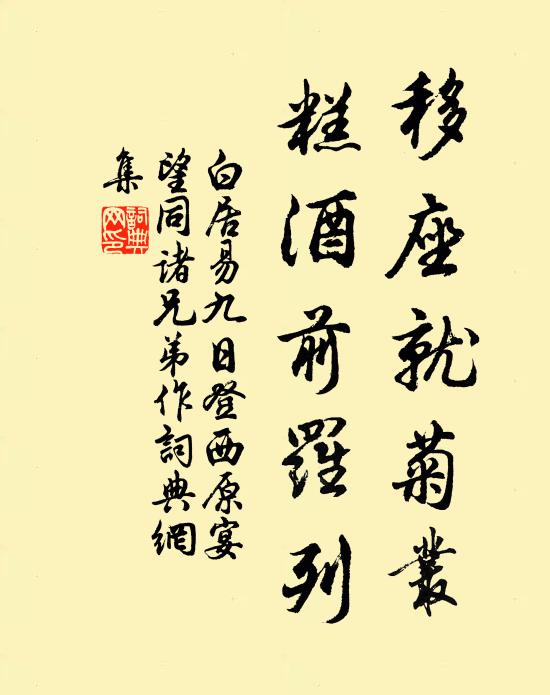 移座就菊叢
糕酒前羅列
白居易九日登西原宴
望同諸兄弟作詞典網
集
詞典網印